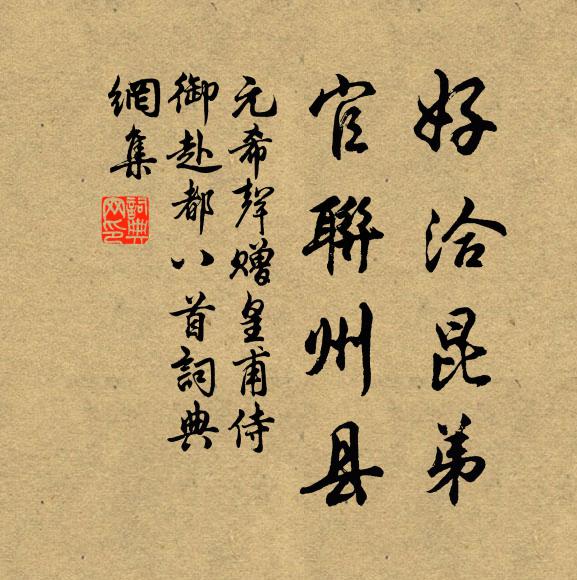 好洽昆弟
官聯州县
元希聲赠皇甫侍
御赴都八首詞典
網集
詞典网印